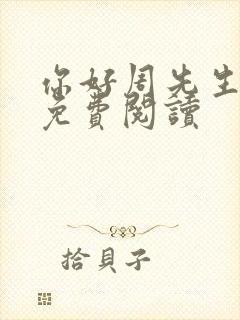 你好周先生
免費閱讀
拾貝子